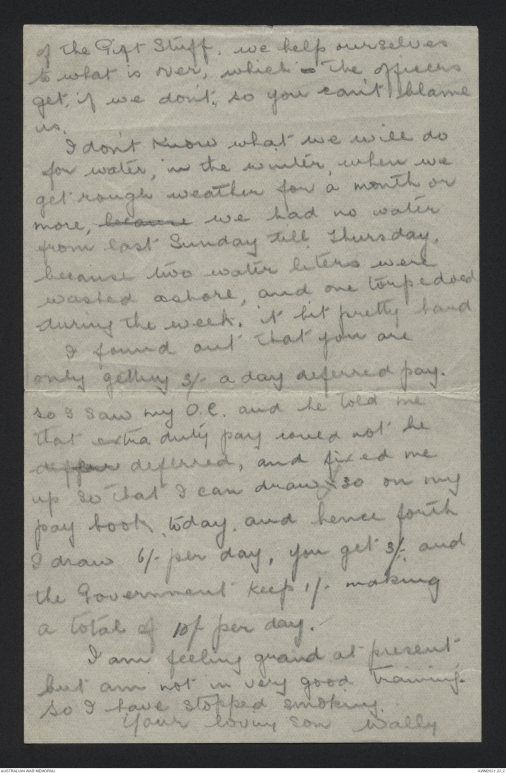 of the Gift Stuff. we help ourselves
to what is over, which the officers
get, if we don't, so you can't blame
us.
I don't know what we will do
for water, in the winter, when we
get rough weather for a month or
more, because we had no water
from last Sunday till Thursday,
because two water liters were
washed ashore, and one torpedoed
during the week. it hit pretty hard
I found out that you are
only getting 3/- a day deferred pay.
so I saw my O.C. and he told me
that extra duty pay could not be
deferred, and fixed me
up so that I can draw £30 on my
pay book, today, and hence forth
I draw 6/- per day, you get 3/- and
the Government keep 1/- making
a total of 10/- per day.
I am feeling grand at present
but am not in very good training.
so I have stopped smoking.
Your loving son Wally
AUSTRALIAN WAR MEMORIAL